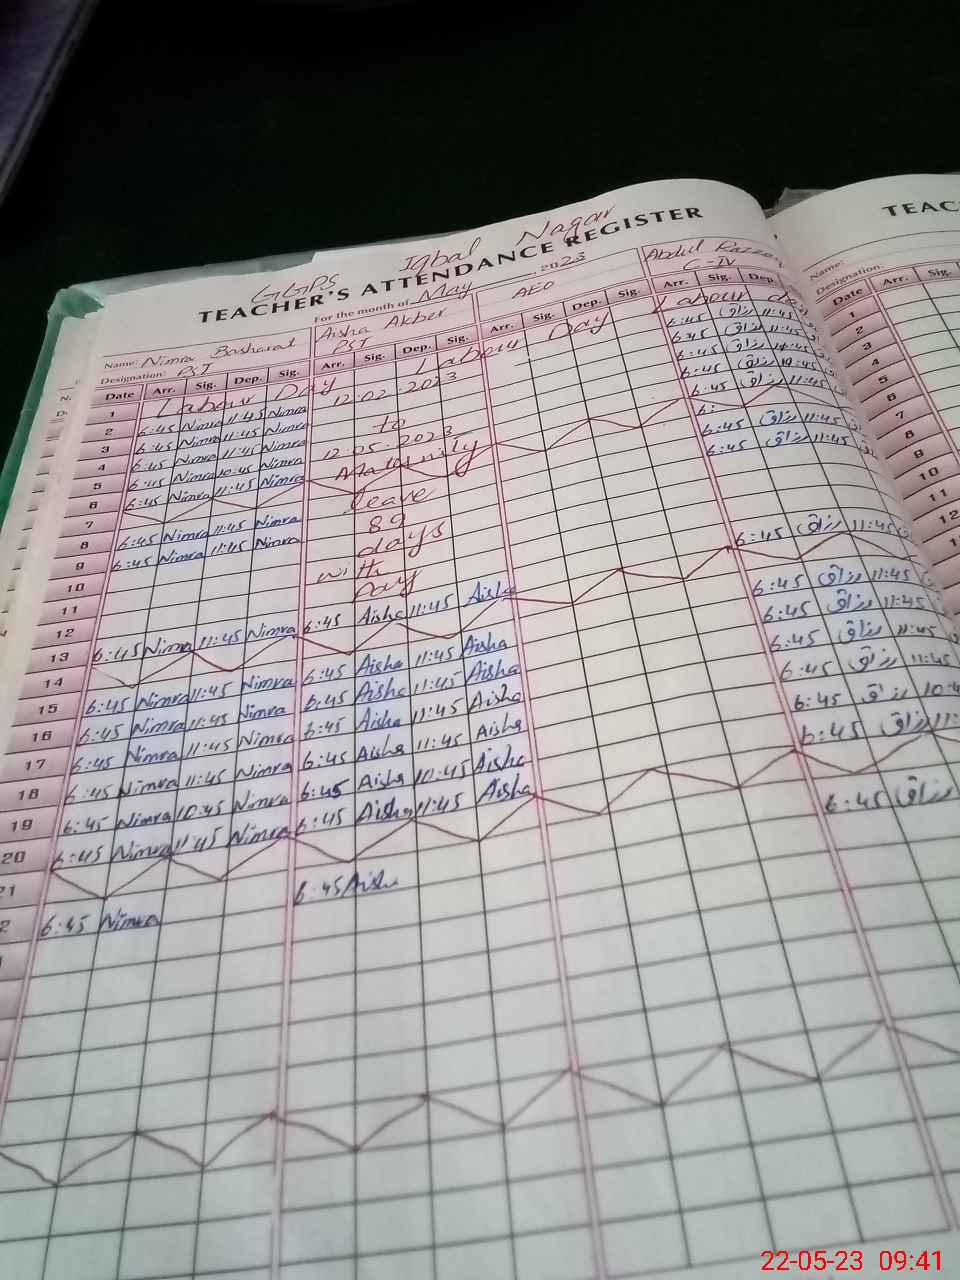 GGPS Iqbal Nagar
TEACHER'S ATTENDANCE REGISTER
For the month of May 2023
Name: Nimra Basharat Aisha Akber AEO Abdul Razzaq
Designation: PST PST C-IV
Date Arr. Sig. Dep. Sig. Arr. Sig. Dep. Sig. Arr. Sig. Dep. Sig. Arr. Sig. Dep.
1 Labour Day Labour Day Labour
2 6:45 Nimra 11:45 Nimra 12.02.2023 6:45 رزاق 11:45
3 6:45 Nimra 11:45 Nimra to 6:45 رزاق 11:45
4 6:45 Nimra 11:45 Nimra 12.05.2023 6:45 رزاق
5 6:45 Nimra 10:45 Nimra Maternity 6:45 رزاق 10:45
6 6:45 Nimra 11:45 Nimra leave 6:45 رزاق 11:45
7 89 6:
8 6:45 Nimra 11:45 Nimra days 6:45 رزاق 11:45
9 6:45 Nimra 11:45 Nimra with 6:45 رزاق 11:45
10 Pay
11
12
13 6:45 Nimra 11:45 Nimra 6:45 Aisha 11:45 Aisha 6:45 رزاق 11:45
14
15 6:45 Nimra 11:45 Nimra 6:45 Aisha 11:45 Aisha 6:45 رزاق 11:45
16 6:45 Nimra 11:45 Nimra 6:45 Aisha 11:45 Aisha 6:45 رزاق 11:45
17 6:45 Nimra 11:45 Nimra 6:45 Aisha 11:45 Aisha 6:45 رزاق 11:45
18 6:45 Nimra 11:45 Nimra 6:45 Aisha 11:45 Aisha 6:45 رزاق 11:45
19 6:45 Nimra 10:45 Nimra 6:45 Aisha 10:45 Aisha 6:45 رزاق
20 6:45 Nimra 11:45 Nimra 6:45 Aisha 11:45 Aisha 6:45 رزاق
21
2 6:45 Nimra 6:45 Aisha 6:45 رزاق
TEAC
Name:
Designation:
Date Arr. Sig.
1
2
3
4
5
6
7
8
9
10
11
12
22-05-23 09:41